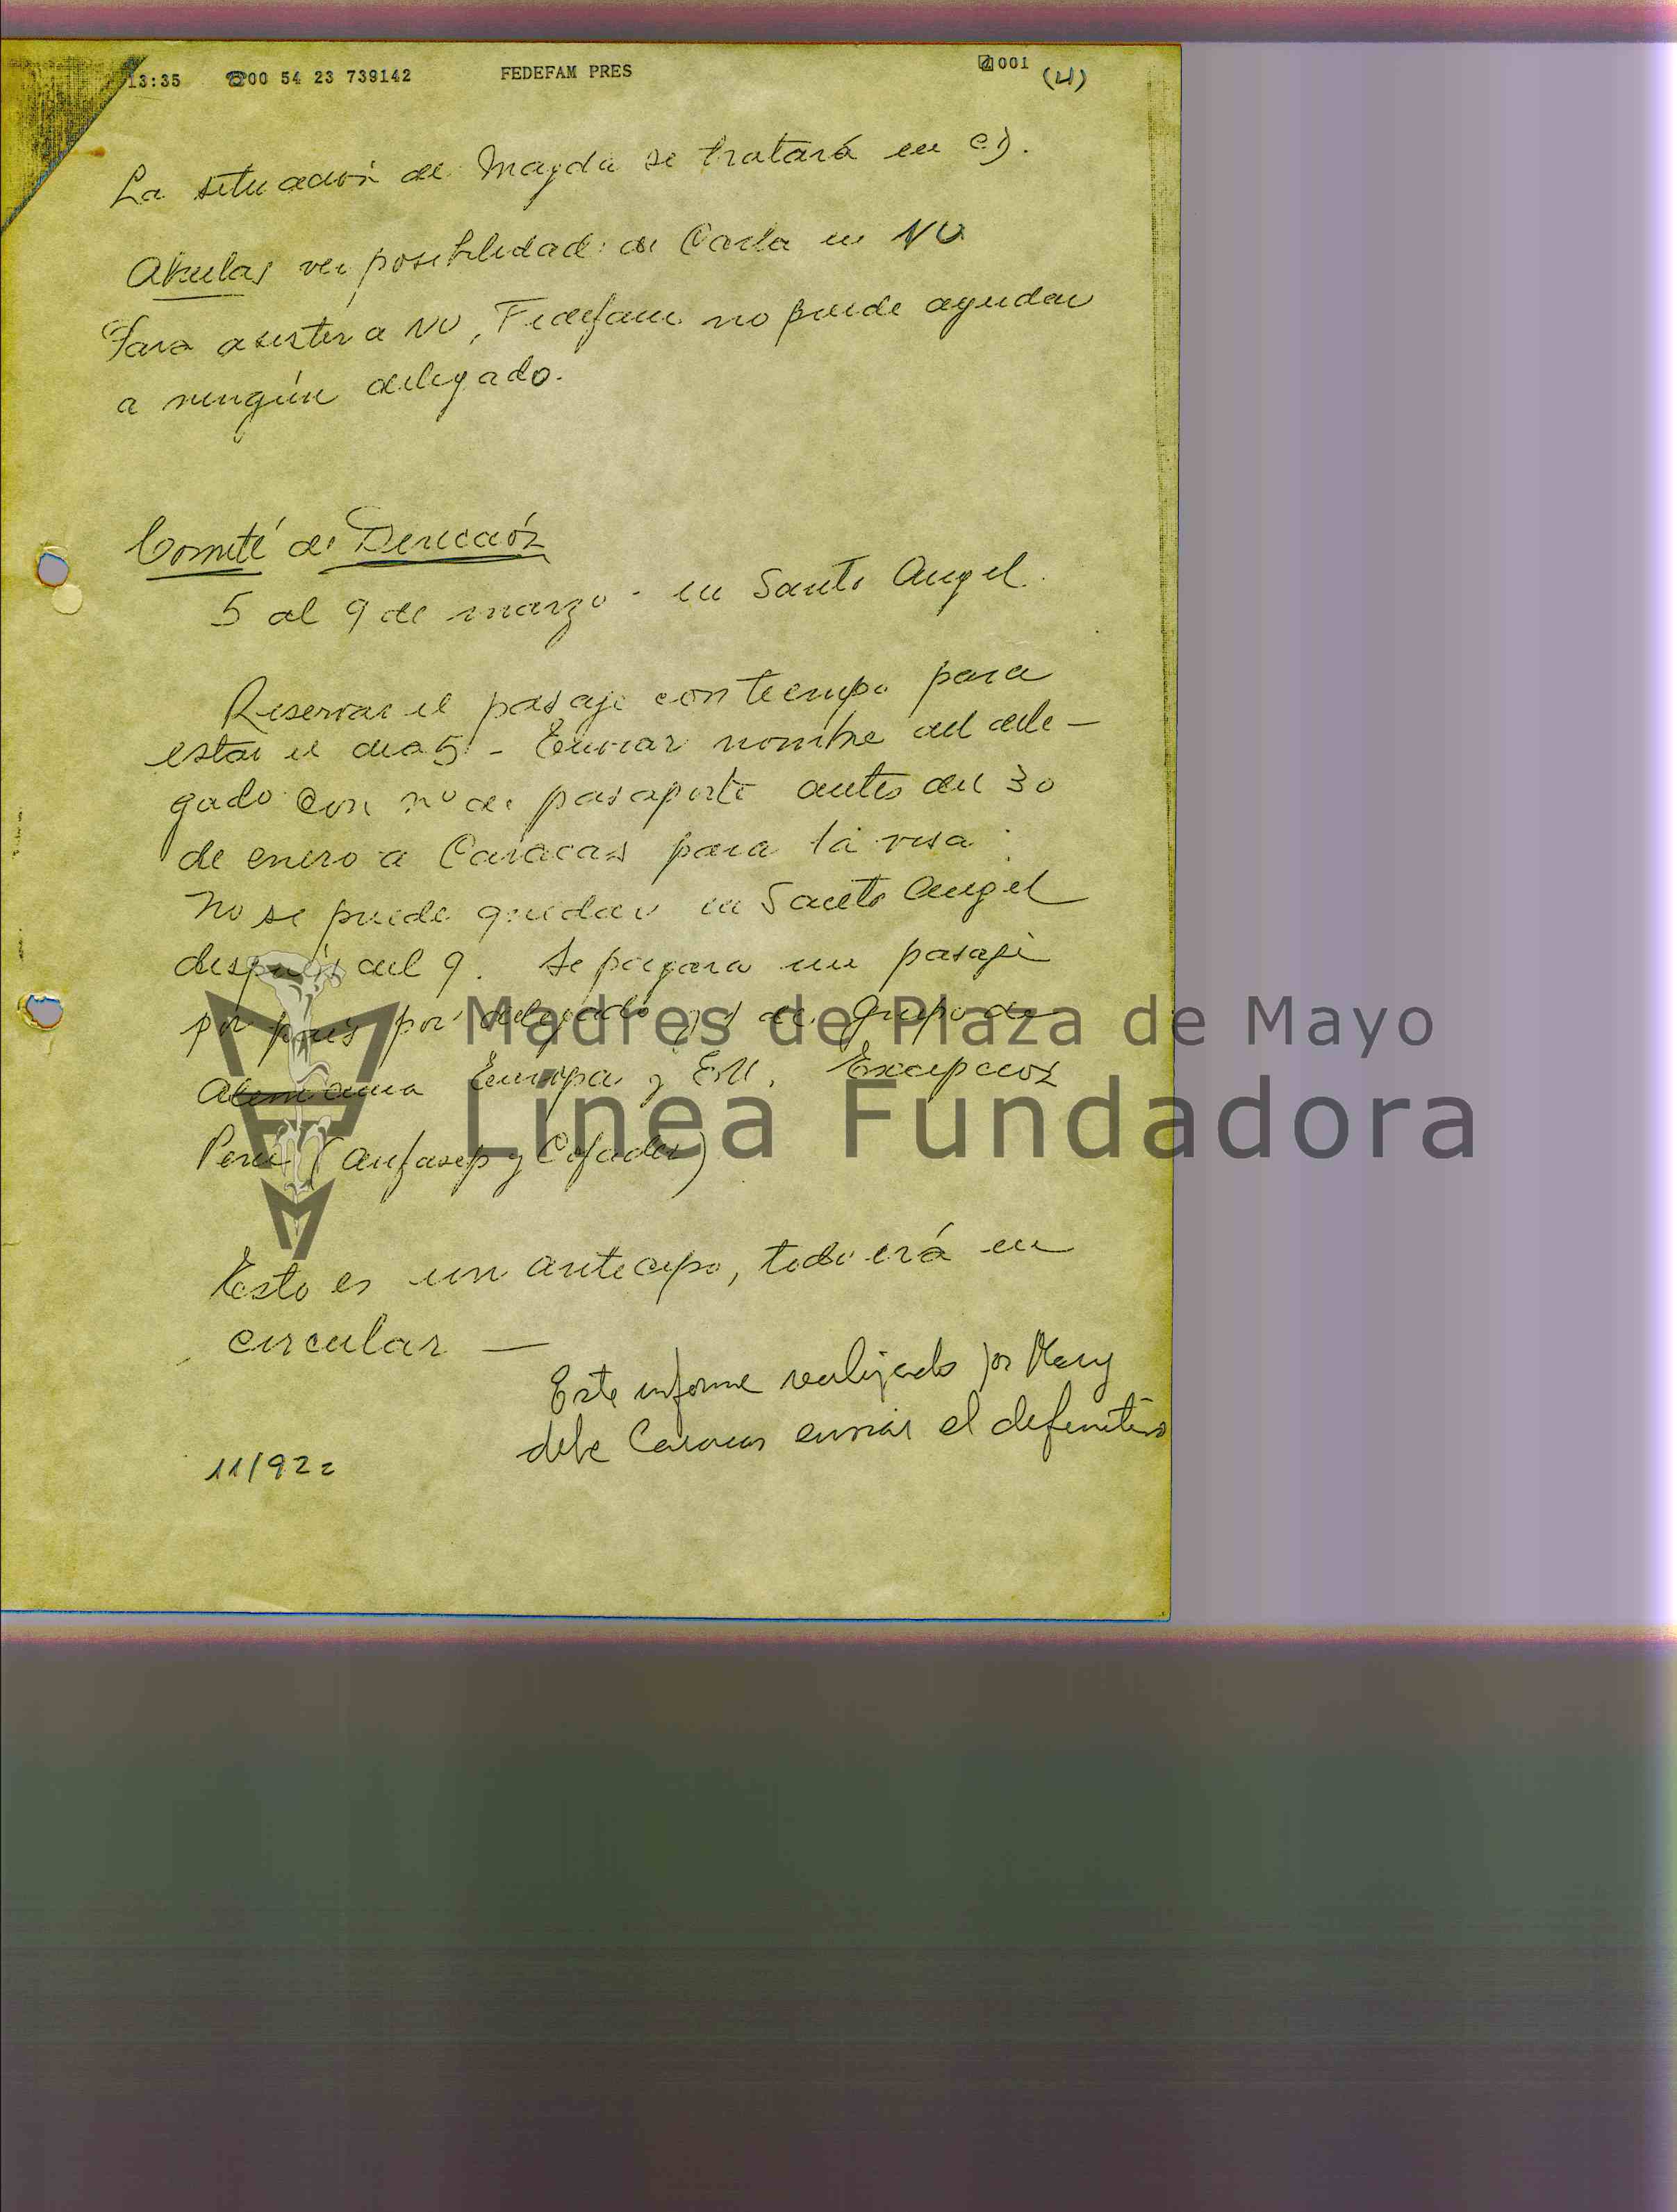 13:35 ☎00 54 23 739142 FEDEFAM PRES 001 (4)
La situación de Magda se tratará en CD.
Abuelas ver posibilidad de Carla en NU
Para asistir a NU, Fedefam no puede ayudar
a ningún delegado.
Comité de Dirección
5 al 9 de marzo - en Santo Angel.
Reservar el pasaje con tiempo para
estar el dia 5 - Enviar nombre del dele-
gado con nº de pasaporte antes del 30
de enero a Caracas para la visa.
No se puede quedar en Santo Angel
después del 9. Se pagara un pasaje
por país por delegado y de Grupo de
Europa y EU. Excepción
Perú (Anfasep y Cofader)
Esto es un anticipo, todo irá en
circular —
Este informe realizado por Mary
debe Caracas enviar el definitivo
11/92
Madres de Plaza de Mayo
Línea Fundadora